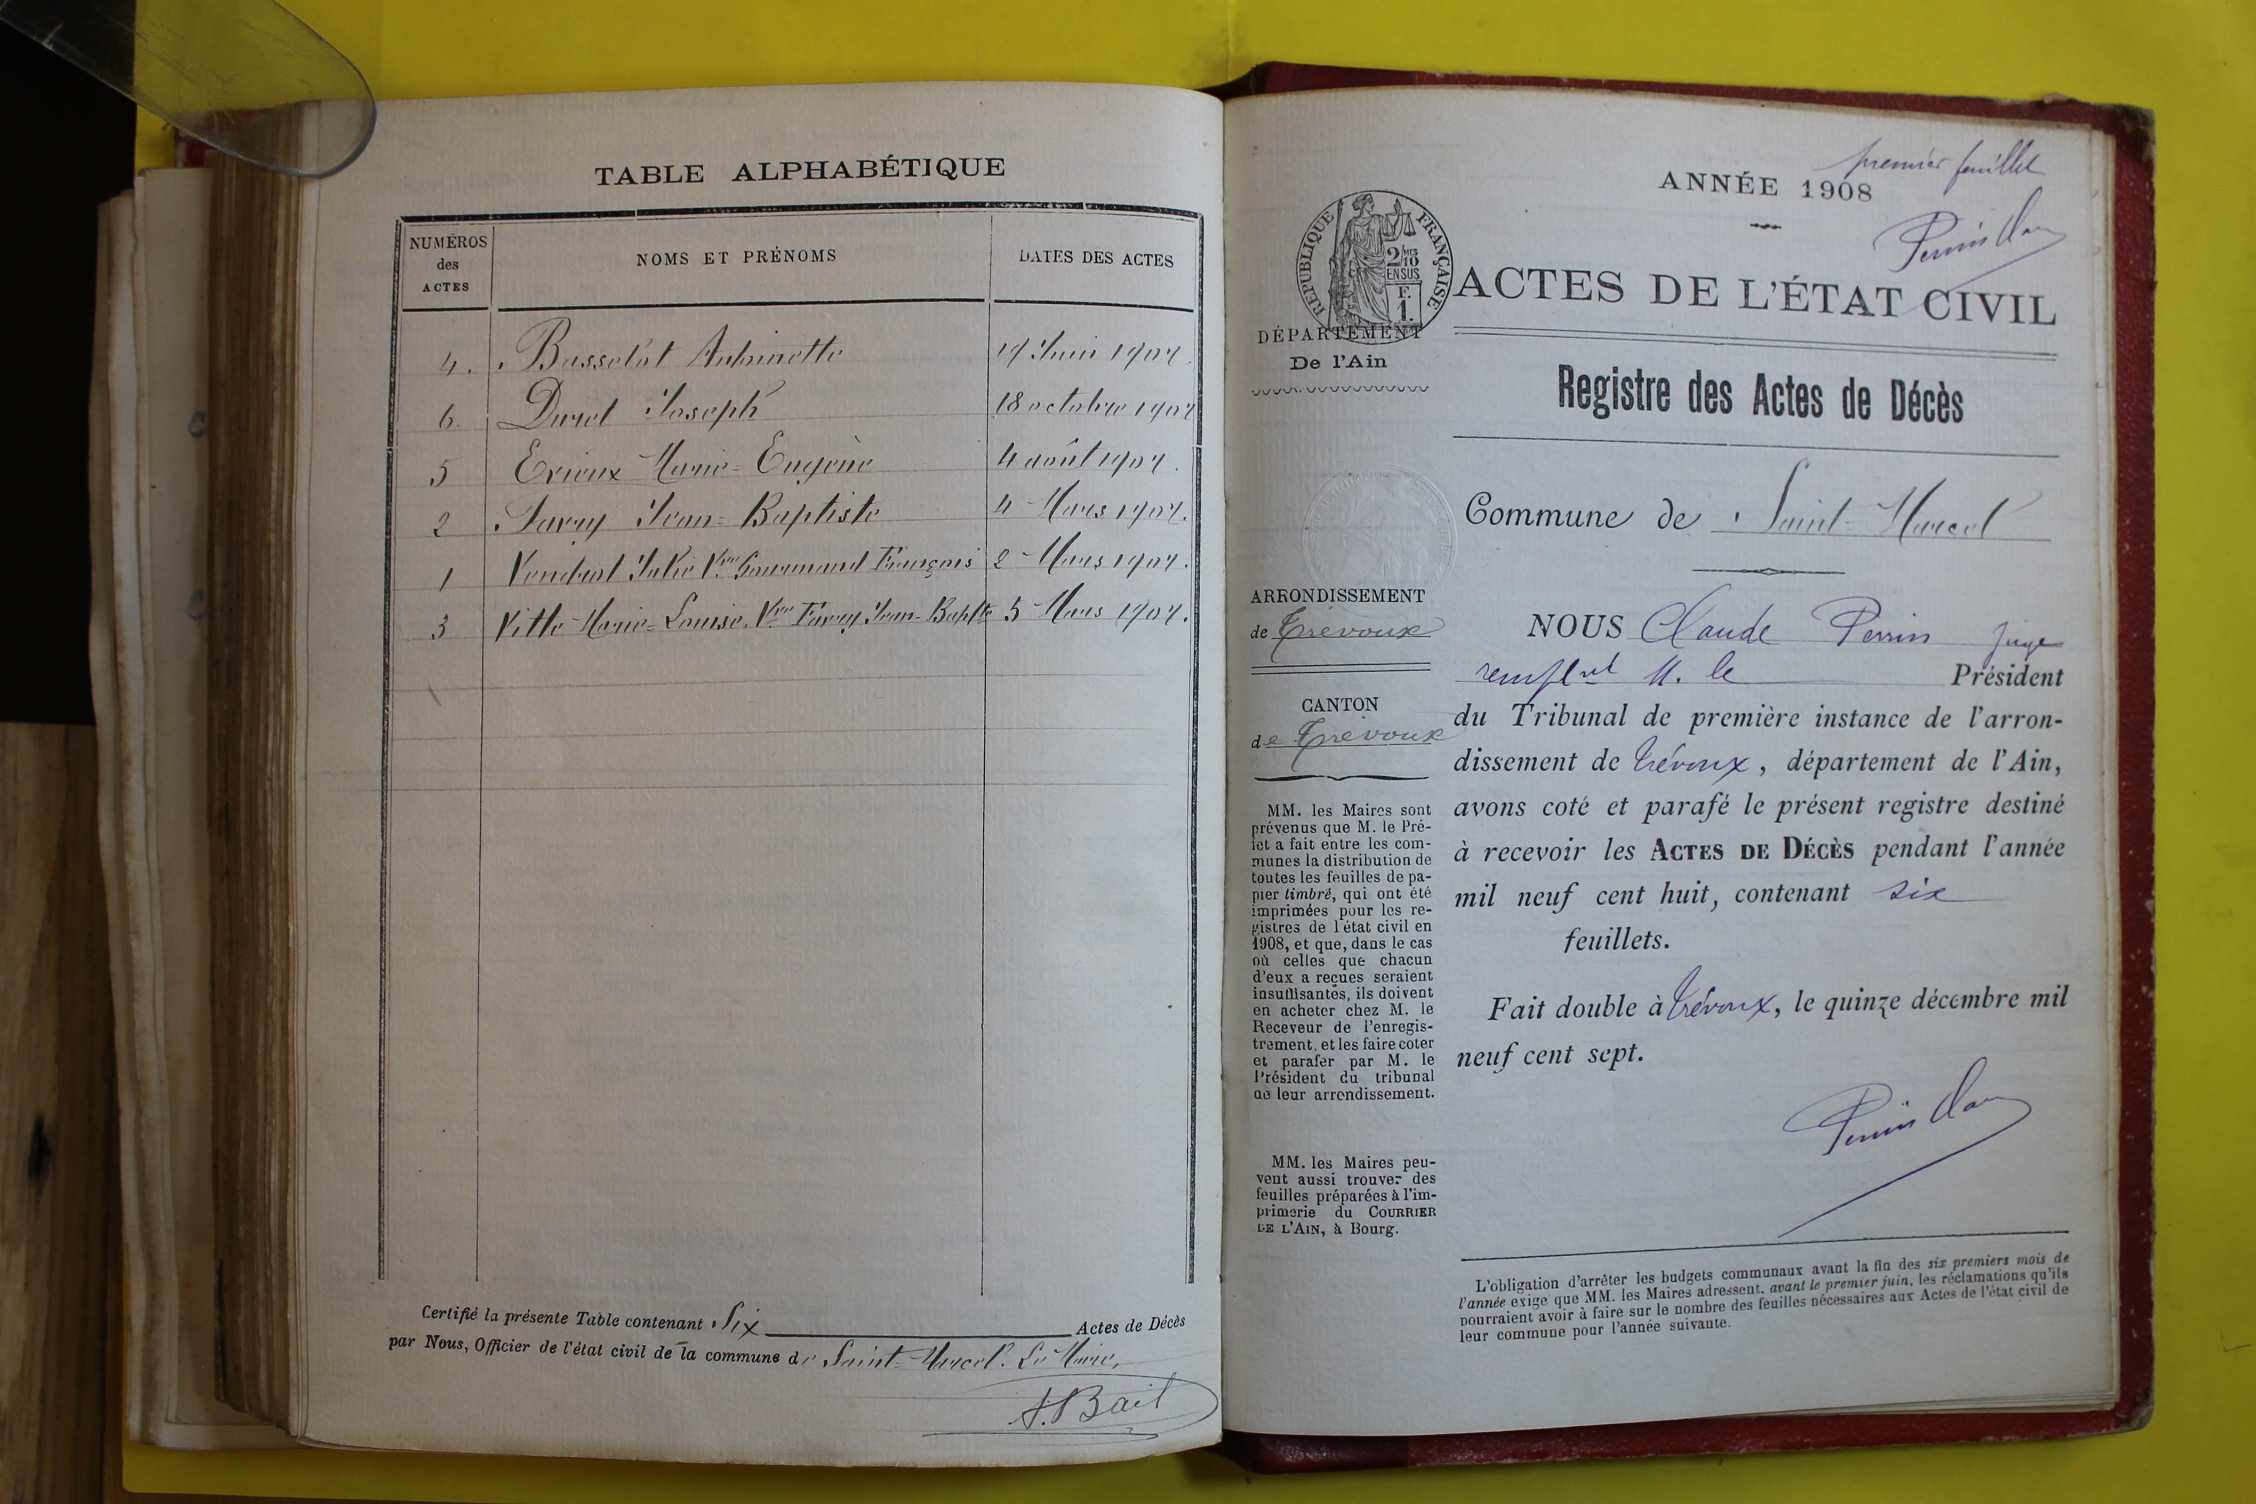 TABLE ALPHABÉTIQUE
NUMÉROS des ACTES
NOMS ET PRÉNOMS
DATES DES ACTES
4. Basselot Antoinette 17 Juin 1907
6. Durel Joseph 18 octobre 1907
5 Erieux Marie-Eugène 4 août 1907.
2 Favry Jean-Baptiste 4 Mars 1907.
1 Vendrat Julie Vve Gourmand François 2 Mars 1907.
3 Ville Marie-Louise Vve Favry Jean-Bapte 5 Mars 1907.
Certifié la présente Table contenant Six Actes de Décès
par Nous, Officier de l'état civil de la commune de Saint-Marcel. Le Maire,
Bail
premier feuillet
ANNÉE 1908
Perrin Clau
RÉPUBLIQUE FRANÇAISE
2/10 MES
EN SUS
F.
1.
ACTES DE L'ÉTAT CIVIL
DÉPARTEMENT
De l'Ain
Registre des Actes de Décès
Commune de Saint-Marcel
ARRONDISSEMENT
de Trévoux
CANTON
de Trévoux
MM. les Maires sont
prévenus que M. le Pré-
fet a fait entre les com-
munes la distribution de
toutes les feuilles de pa-
pier timbré, qui ont été
imprimées pour les re-
gistres de l'état civil en
1908, et que, dans le cas
où celles que chacun
d'eux a reçues seraient
insuffisantes, ils doivent
en acheter chez M. le
Receveur de l'enregis-
trement, et les faire coter
et parafer par M. le
Président du tribunal
de leur arrondissement.
MM. les Maires peu-
vent aussi trouver des
feuilles préparées à l'im-
primerie du COURRIER
DE L'AIN, à Bourg.
NOUS Claude Perrin juge
remplnt M. le Président
du Tribunal de première instance de l'arron-
dissement de Trévoux, département de l'Ain,
avons coté et parafé le présent registre destiné
à recevoir les ACTES DE DÉCÈS pendant l'année
mil neuf cent huit, contenant six
feuillets.
Fait double à Trévoux, le quinze décembre mil
neuf cent sept.
Perrin Clau
L'obligation d'arrêter les budgets communaux avant la fin des six premiers mois de
l'année exige que MM. les Maires adressent, avant le premier juin, les réclamations qu'ils
pourraient avoir à faire sur le nombre des feuilles nécessaires aux Actes de l'état civil de
leur commune pour l'année suivante.